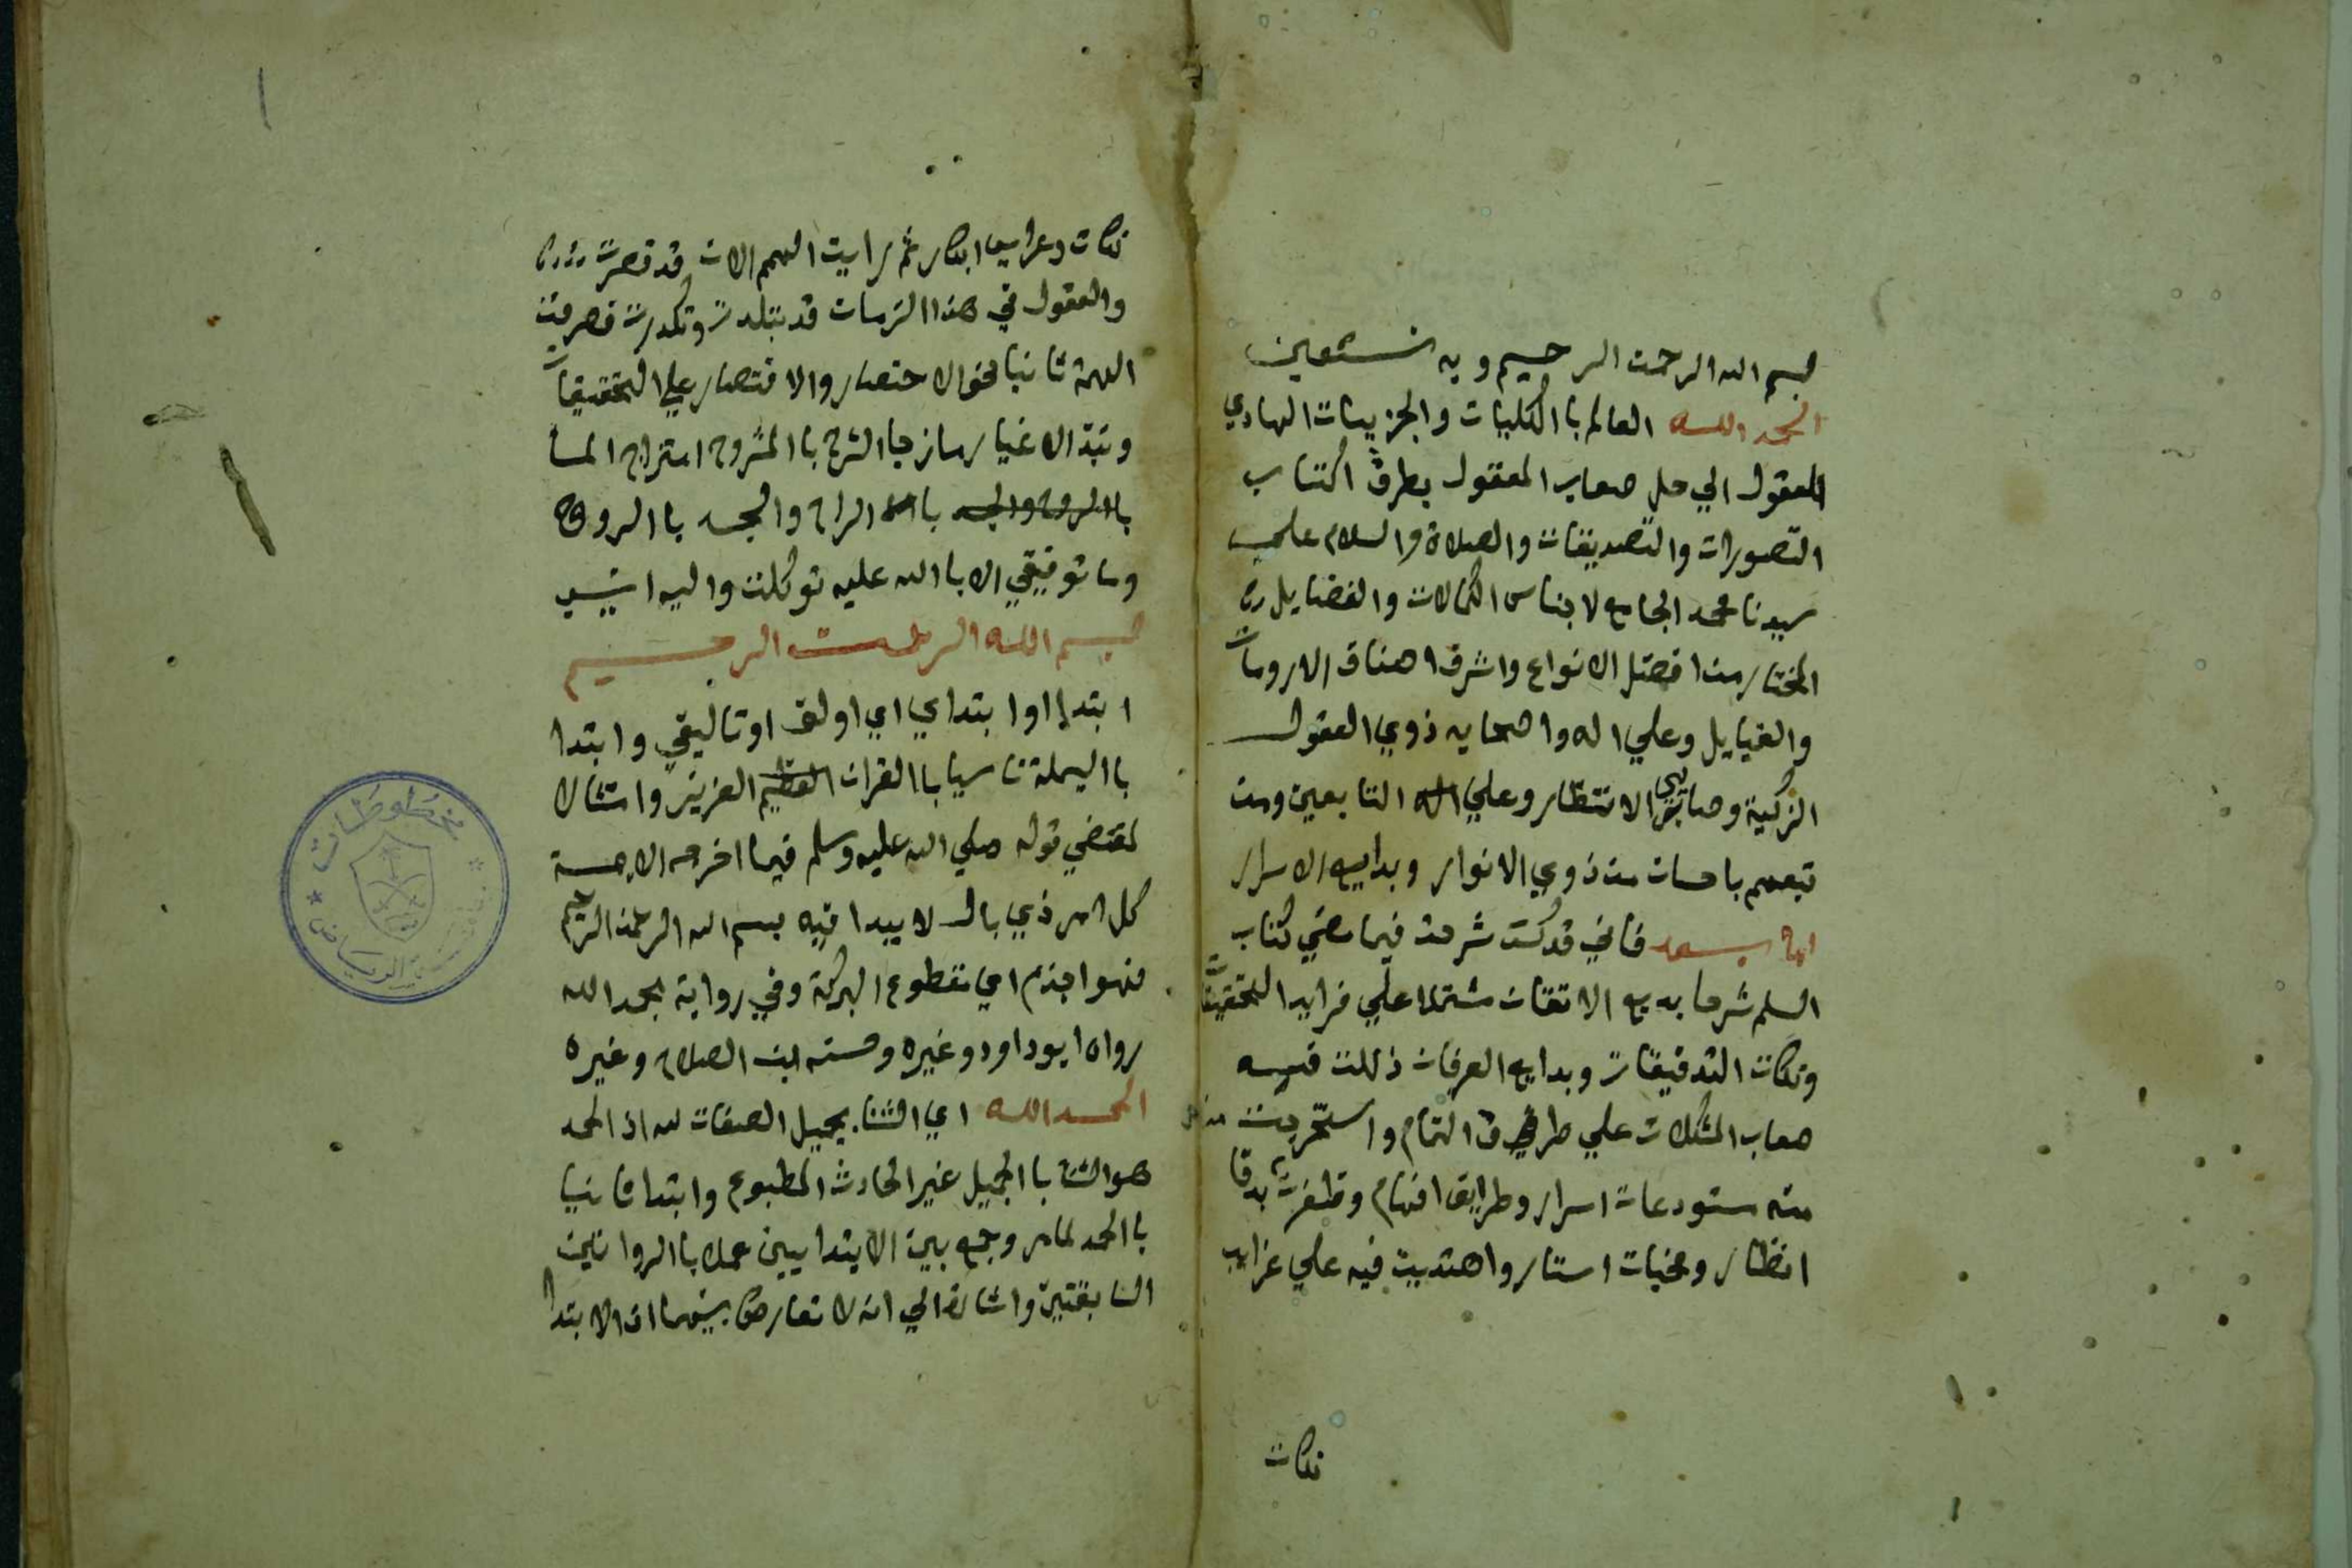 بسم الله الرحمن الرحيم وبه نستعين
الحمد لله العالم با الكليات والجزييات الهادي
العقول الي حل صعاب المعقول بطرق اكتساب
التصورات والتصديقات والصلاة والسلام علي
سيدنا محمد الجامع لاجناس الكمالات والفضايل
المختار من افضل الانواع واشرف اصناف الارومات
والقبايل وعلي اله واصحابه ذوي العقول
الزكية وصايبي الانتظار وعلي التابعين ومن
تبعهم باحسان من ذوي الانوار وبدايع الاسرار
اما بعد فاني قد كنت شرحت فيما مضي كتاب
السلم شرحا بديع الاتقان مشتملا علي فرايد التحقيقات
ونكات التدقيقات وبدايع العرفان ذللت فيه
صعاب المشكلات علي طرف التمام واستخرجت
منه مستودعات اسرار وطرايق افهام وظفرت بدقا
انظار ومخبات استار واهتديت فيه علي غرايب
نكات
نكات وعرايس ابكار ثم رايت الهمم الان قد قصرت
والعقول في هذا الزمان قد تبلدت وتكدرت فصرفت
الهمة ثانيا نحو الاختصار والاقتصار علي التحقيقات
ونبذ الاغيار مازجا الشرح با المشروح امتزاج الما
با الراح والجسد با الروح
وما توفيقي الا با الله عليه توكلت واليه انيب
بسم الله الرحمن الرحيم
ابتدا اوا بتداي اي اولف او تاليفي وابتدا
با البسملة تاسيا با القران العزيز وامتثالا
لمقتضي قوله صلي الله عليه وسلم فيما اخرجه الايمة
كل امر ذي بال لا يبدا فيه بسم الله الرحمن الرحيم
فهو اجذم اي مقطوع البركة وفي رواية بحمد الله
رواه ابوداود وغيره وحسنه ابن الصلاح وغيره
الحمد لله اي الثنا بجميل الصفات لله اذ الحمد
هو الثنا با الجميل غير الحادث المطبوع وابتدا ثانيا
با الحمد لما مر وجمع بين الابتدايين عملا با الروايتين
السابقتين واشارة الي انه لا تعارض بينهما اذ الابتدا
مخطوطات
الرياض